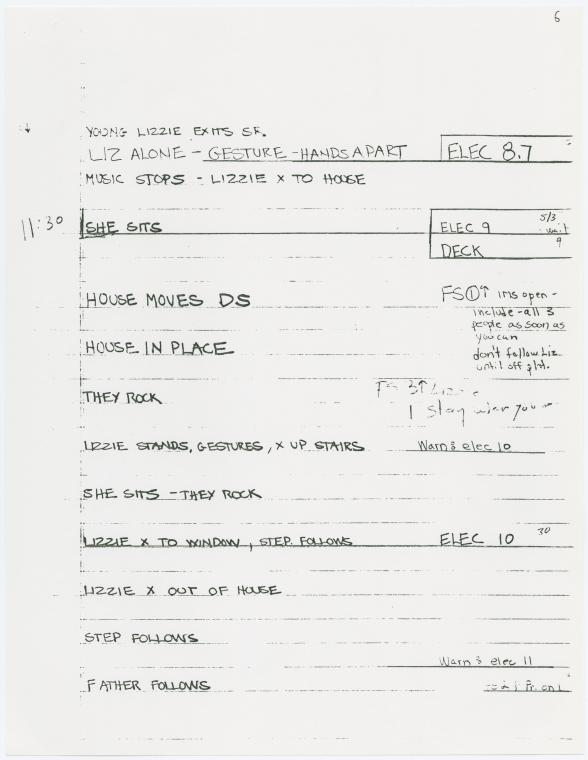 6
YOUNG LIZZIE EXITS SR.
LIZ ALONE - GESTURE - HANDS APART ELEC 8.7
MUSIC STOPS - LIZZIE X TO HOUSE
11:30 SHE SITS ELEC 9 5/3 wait 9
DECK
HOUSE MOVES DS FS①↑ ims open -
include - all 3
people as soon as
you can
HOUSE IN PLACE don't follow Liz
until off plat.
THEY ROCK FS 3↑ Lizzie
1 stay
LIZZIE STANDS, GESTURES, X UP STAIRS Warn: elec 10
SHE SITS - THEY ROCK
LIZZIE X TO WINDOW, STEP. FOLLOWS ELEC 10 30
LIZZIE X OUT OF HOUSE
STEP FOLLOWS
Warn: elec 11
FATHER FOLLOWS